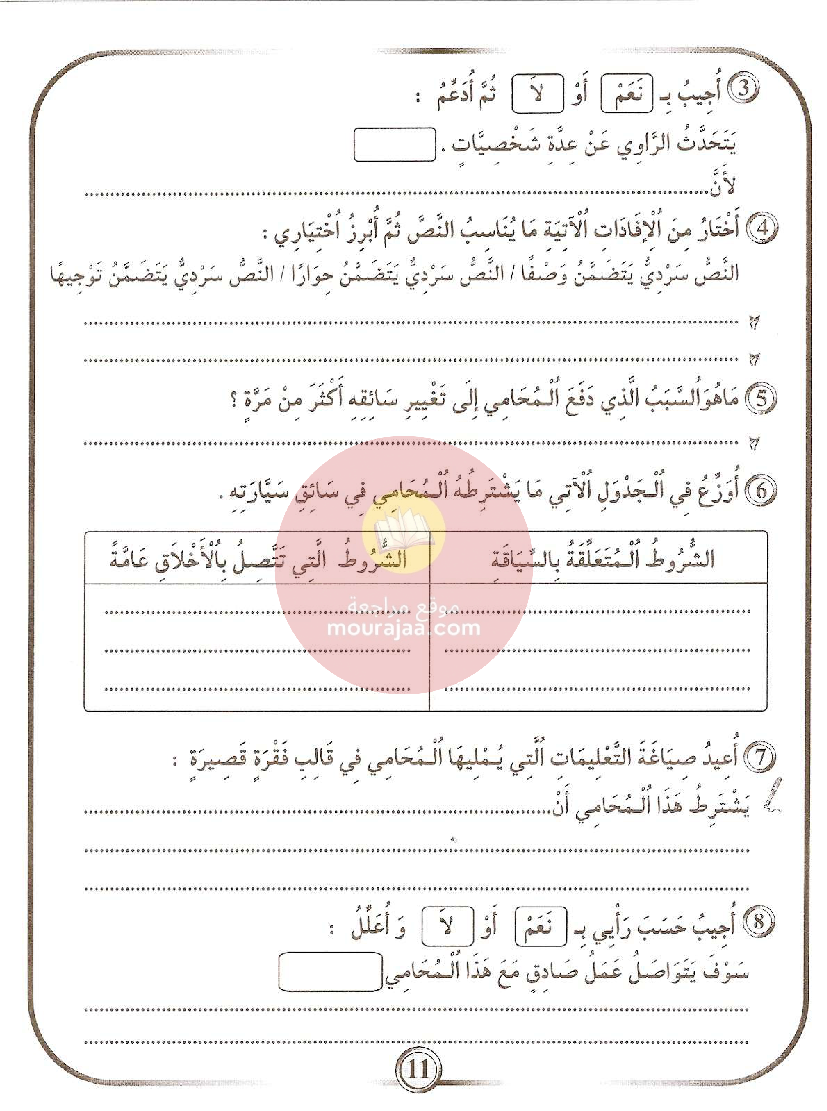 3 أُجِيبُ بِـ نَعَمْ أَوْ لاَ ثُمَّ أُدَعِّمُ :
يَتَحَدَّثُ الرَّاوِي عَنْ عِدَّةِ شَخْصِيَّاتٍ .
لأنَّ......
4 أَخْتَارُ مِنَ اُلْإِفَادَاتِ اُلْآتِيَةِ مَا يُنَاسِبُ النَّصَّ ثُمَّ أُبْرِزُ اُخْتِيَارِي :
النَّصُّ سَرْدِيٌّ يَتَضَمَّنُ وَصْفًا / النَّصُّ سَرْدِيٌّ يَتَضَمَّنُ حِوَارًا / النَّصُّ سَرْدِيٌّ يَتَضَمَّنُ تَوْجِيهًا
5 مَاهُوَاُلسَّبَبُ الَّذِي دَفَعَ اُلْمُحَامِي إِلَى تَغْيِيرِ سَائِقِهِ أَكْثَرَ مِنْ مَرَّةٍ ؟
6 أُوَزِّعُ فِي اُلْجَدْوَلِ اُلْآتِي مَا يَشْتَرِطُهُ اُلْمُحَامِي فِي سَائِقِ سَيَّارَتِهِ .
الشُّرُوطُ اُلْمُتَعَلِّقَةُ بِالسِّيَاقَةِ
الشُّرُوطُ الَّتِي تَتَّصِلُ بِاُلْأَخْلَاقِ عَامَّةً
موقع مراجعة
mourajaa.com
7 أُعِيدُ صِيَاغَةَ التَّعْلِيمَاتِ اُلَّتِي يُمْلِيهَا اُلْمُحَامِي فِي قَالِبِ فَقْرَةٍ قَصِيرَةٍ :
يَشْتَرِطُ هَذَا اُلْمُحَامِي أَنْ......
8 أُجِيبُ حَسَبَ رَأْيِي بِـ نَعَمْ أَوْ لاَ وَ أُعَلِّلُ :
سَوْفَ يَتَوَاصَلُ عَمَلُ صَادِقٍ مَعَ هَذَا اُلْمُحَامِي
11